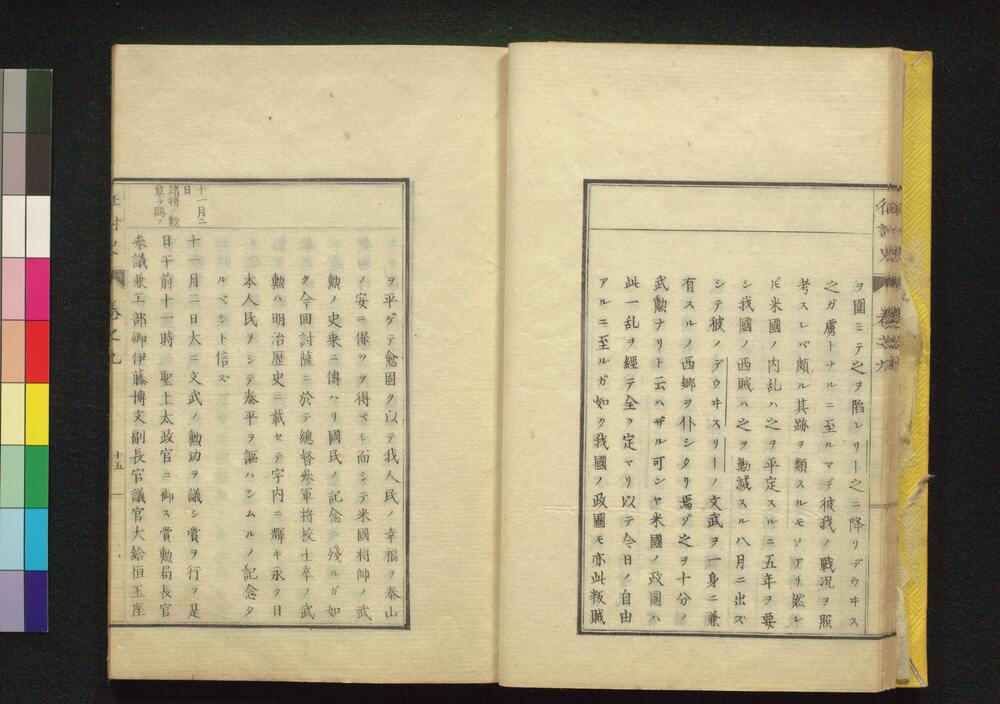 ヲ圍ミテ之ヲ陷レリー之ニ降リデウヰス
之ガ虜トナルニ至ルマデ彼我ノ戰況ヲ照
考スレバ頗ル其跡ヲ類スルモノアリ然レ
𪜈米國ノ内乱ハ之ヲ平定スルニ五年ヲ要
シ我國ノ西賊ハ之ヲ勦滅スル八月ニ出ズ
シテ彼ノデウヰスリーノ文武ヲ一身ニ兼
有スルノ西郷ヲ仆シタリ焉ゾ之ヲ十分ノ
武勲ナリト云ハザル可シヤ米國ノ政圖ハ
此一乱ヲ經テ全ク定マリ以テ今日ノ自由
アルニ至ルガ如ク我國ノ政圖モ亦此叛賊
ヲ平ゲテ愈固ク以テ我人民ノ幸福ヲ泰山
ノ安ニ保ツヲ得ベシ而シテ米國將帥ノ武
勲ノ史乗ニ傳ハリ國民ノ記念ニ殘ルガ如
ク今回討薩ニ於テ總督參軍将校士卒ノ武
勲ハ明治歴史ニ載セテ宇内ニ輝キ永ク日
本人民ヲシテ泰平ヲ謳ハシムルノ記念タ
ルベシト信ズ
十一月二日
諸将ノ勲
章ヲ賜フ
十一月二日大ニ文武ノ勲功ヲ議シ賞ヲ行フ是
日午前十一時聖上太政官ニ御ス賞勲局長官
参議兼工部卿伊藤博文副長官議官大給恒玉座
征討史
卷之九
十五